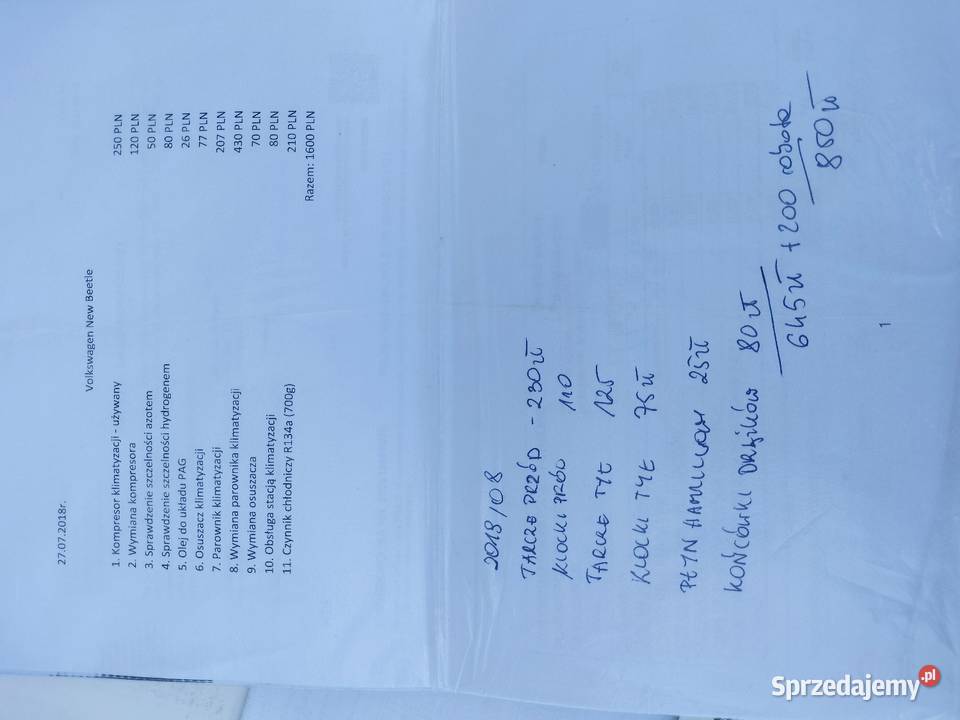 27.07.2018r.
Volkswagen New Beetle
1. Kompresor klimatyzacji - używany 250 PLN
2. Wymiana kompresora 120 PLN
3. Sprawdzenie szczelności azotem 50 PLN
4. Sprawdzenie szczelności hydrogenem 80 PLN
5. Olej do układu PAG 26 PLN
6. Osuszacz klimatyzacji 77 PLN
7. Parownik klimatyzacji 207 PLN
8. Wymiana parownika klimatyzacji 430 PLN
9. Wymiana osuszacza 70 PLN
10. Obsługa stacją klimatyzacji 80 PLN
11. Czynnik chłodniczy R134a (700g) 210 PLN
Razem: 1600 PLN
2019/08
TARCZE PRZÓD - 230 zł
KLOCKI PRZÓD 110
TARCZE TYŁ 125
KLOCKI TYŁ 75 zł
PŁYN HAMULCOWY 25 zł
KOŃCÓWKI DRĄŻKÓW 80 zł
645 zł + 200 robota
850 zł
1
Sprzedajemy.pl